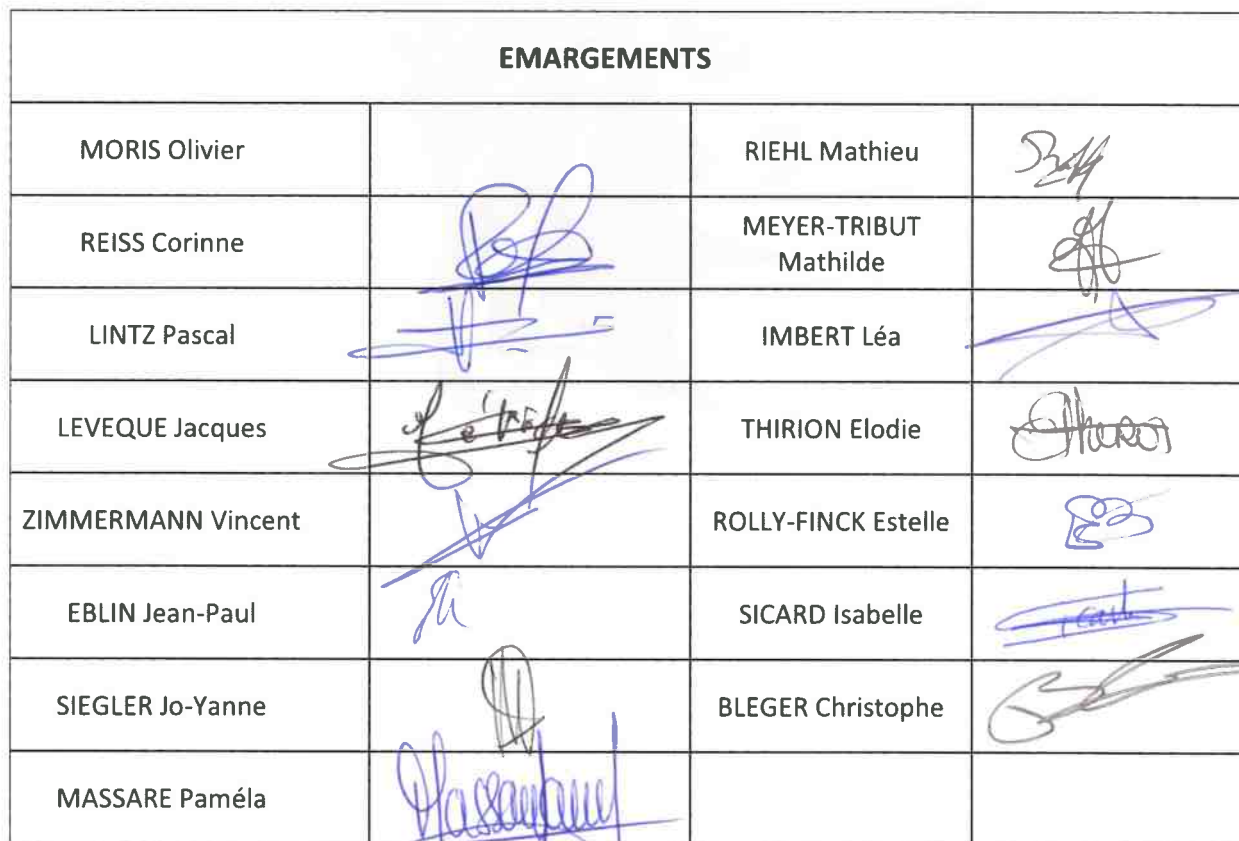 EMARGEMENTS
MORIS Olivier
RIEHL Mathieu
REISS Corinne
MEYER-TRIBUT
Mathilde
LINTZ Pascal
IMBERT Léa
LEVEQUE Jacques
THIRION Elodie
ZIMMERMANN Vincent
ROLLY-FINCK Estelle
EBLIN Jean-Paul
SICARD Isabelle
SIEGLER Jo-Yanne
BLEGER Christophe
MASSARE Paméla